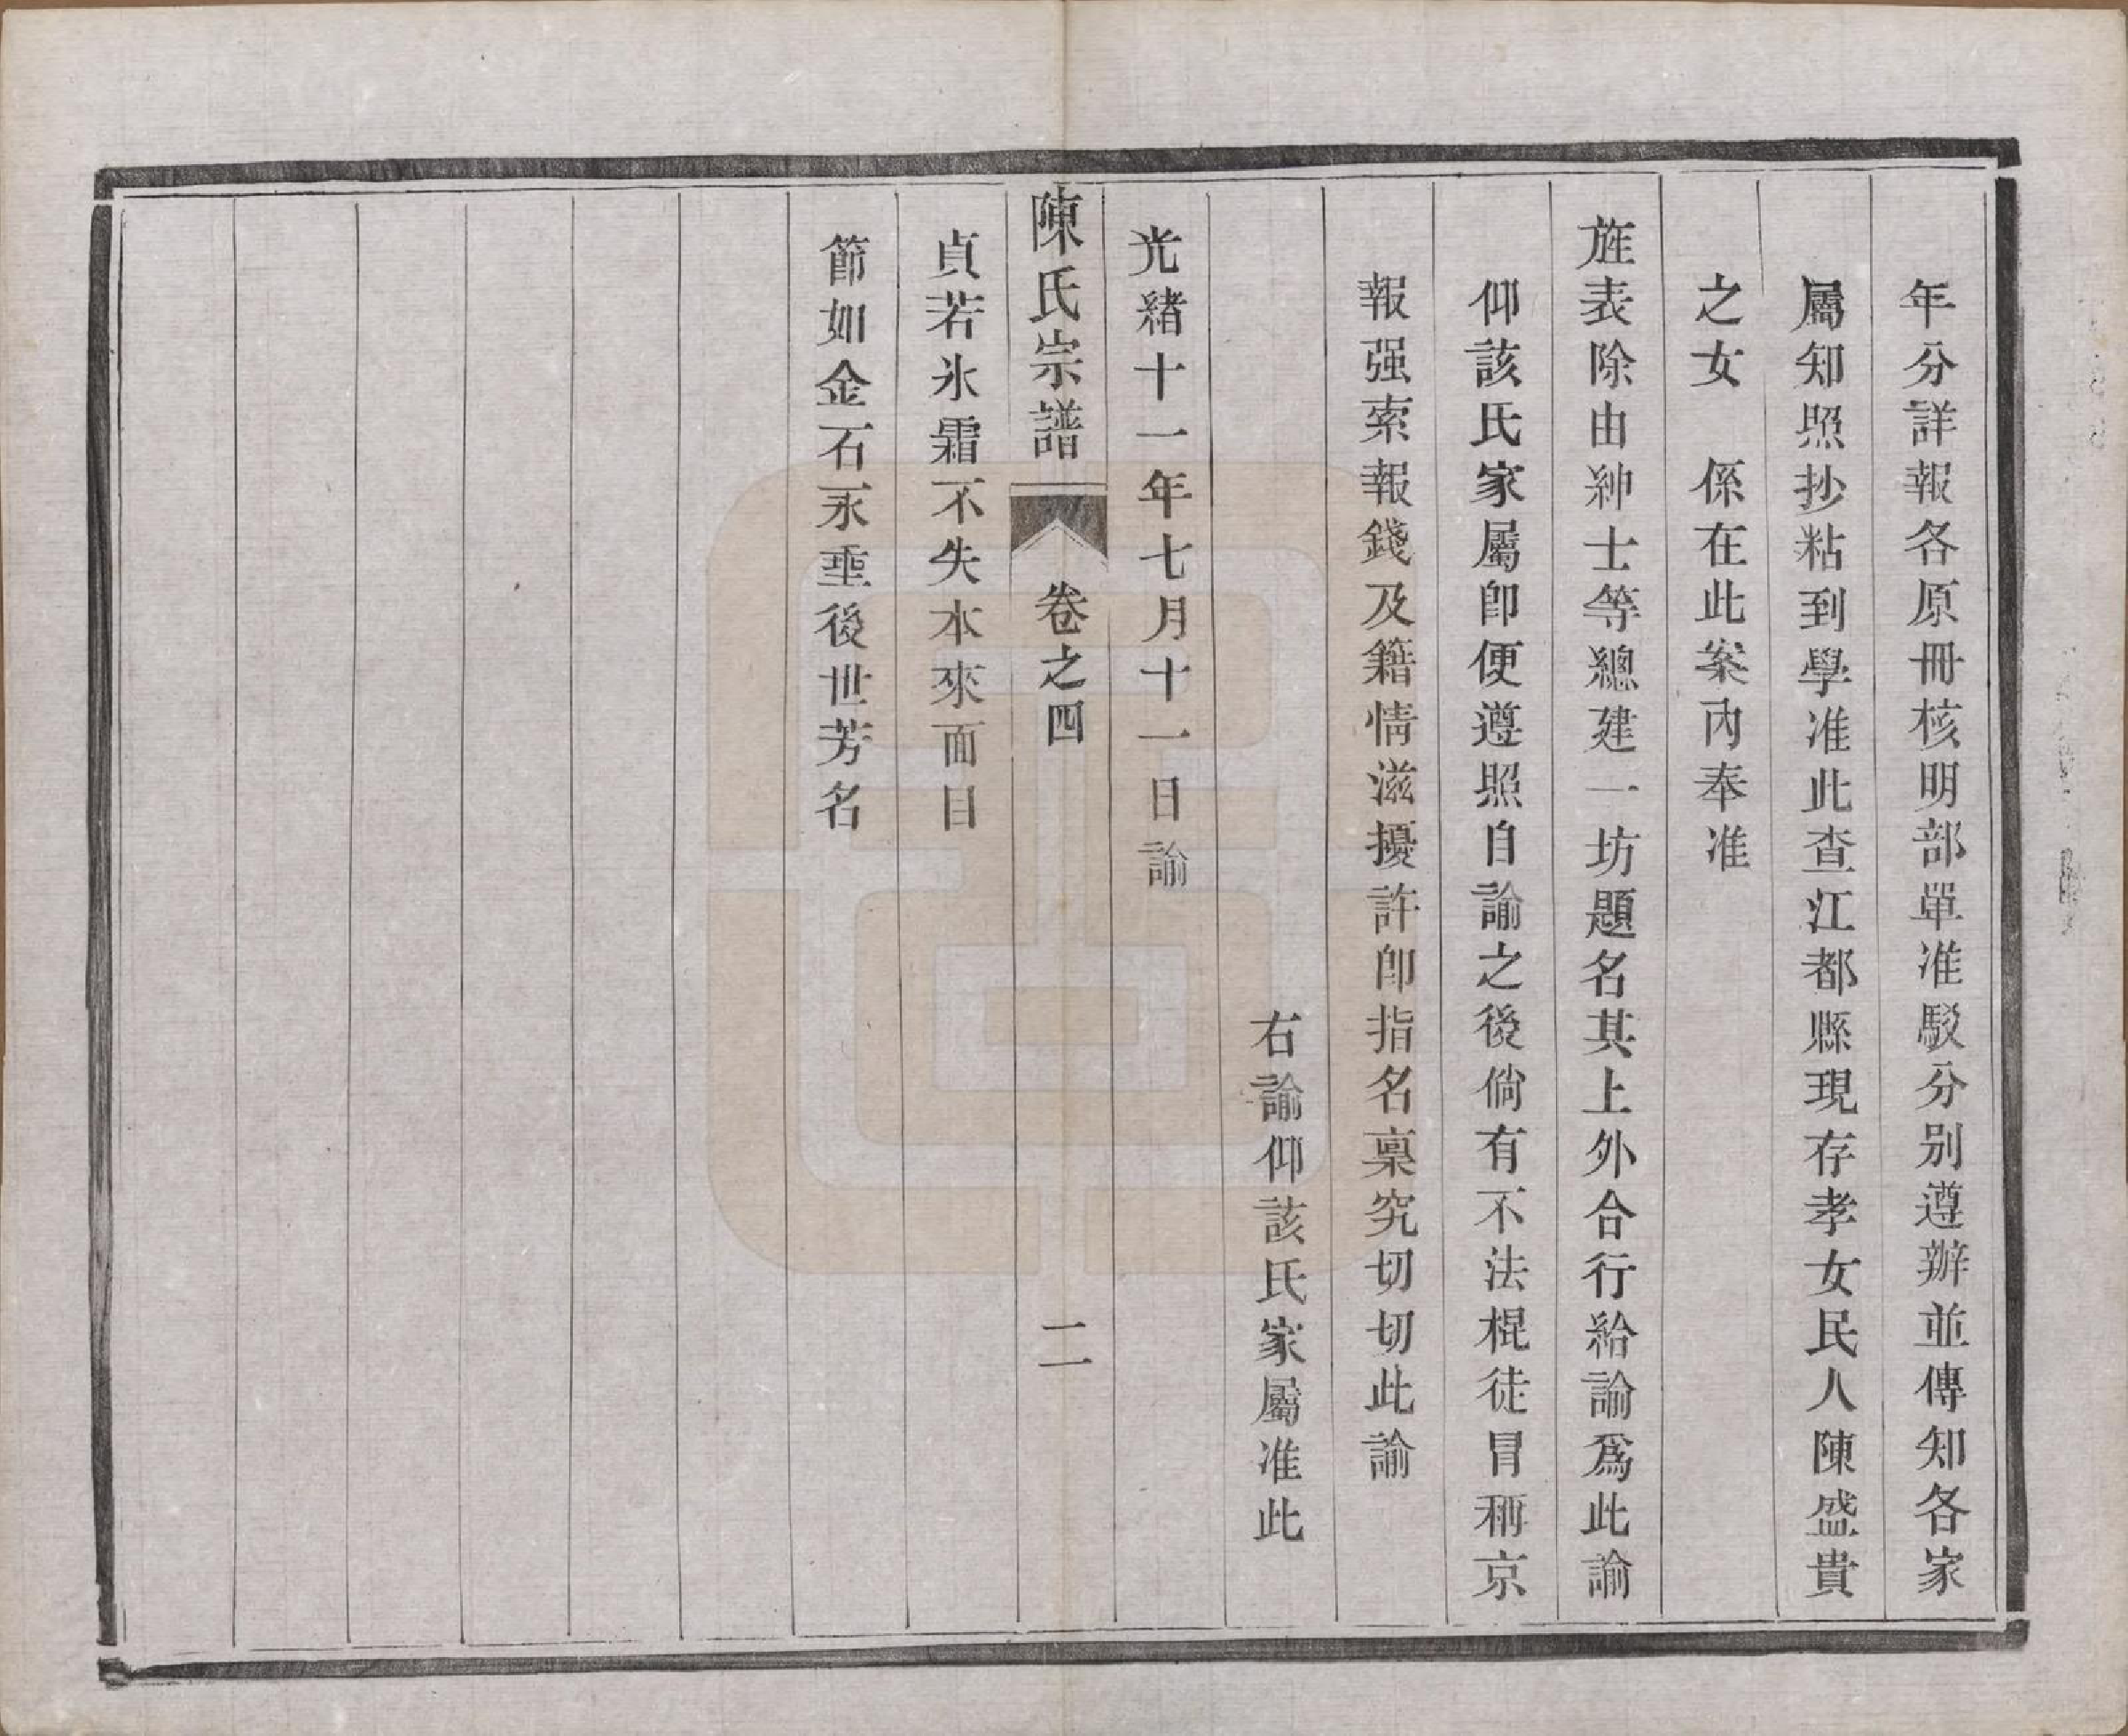 年分詳報各原冊核明部單准駁分別遵辦並傳知各家
屬知照抄粘到學准此查江都縣現存孝女民人陳盛貴
之女　係在此案內奉准
旌表除由紳士等總建一坊題名其上外合行給諭爲此諭
仰該氏家屬卽便遵照自諭之後倘有不法棍徒冒稱京
報强索報錢及籍情滋擾許卽指名稟究切切此諭
右諭仰該氏家屬准此
光緒十一年七月十一日諭
陳氏宗譜　卷之四　二
貞若氷霜不失本來面目
節如金石永垂後世芳名